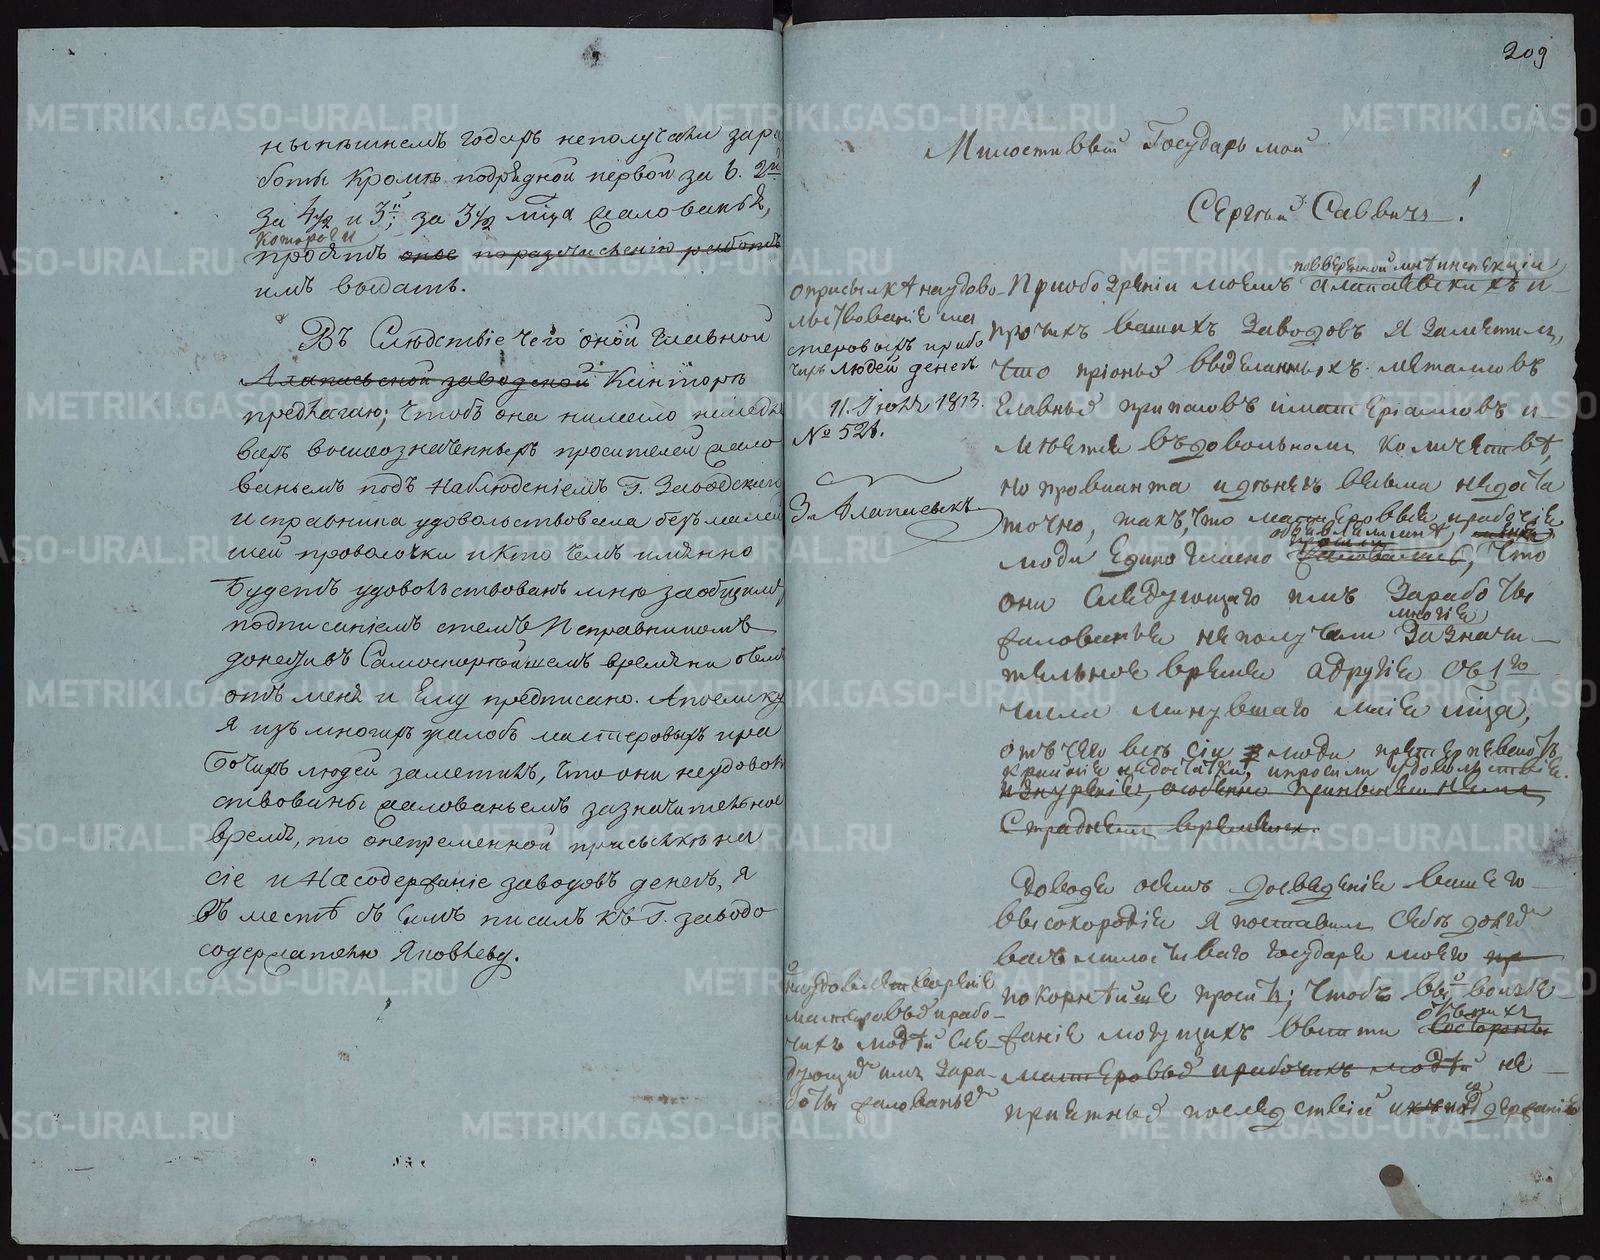 нынѣшнемъ годахъ неполучали зара
боты кромѣ подрядной первой за 6. 2й
за 4½ и 3й; за 3½ м҃ца жалованья,
которой и
просятъ оное по разчисленію работъ
имъ выдать.
Въ Слѣдствіе чего оной главной
Алапаевской заводской Канторѣ
предлагаю; чтобъ она нимало немедля
всѣхъ вышеозначенныхъ просителей жало
ваньемъ подъ наблюденіемъ Г. Заводскаго
исправника удовольствовала безъ малей
шей проволочки икто чемъ имянно
будетъ удовольствованъ мнѣ заобщимъ
подписаніемъ стемъ Исправникомъ
донесла въ Самоскорѣйшемъ времяни о чемъ
отъ меня и Ему предписано. Апоелику
я изъ многихъ жалобъ мастеровыхъ ира
бочихъ людей заметилъ, что они неудоволь
ствованы жалованьемъ зазначительное
время, то онепременной присылкѣ на
сіе и насодержаніе заводовъ денегъ, я
въ местѣ съ симъ писалъ къ Г. заводо
содержателю Яковлеву.
209
Милостивый Государь мой
Сергѣй Саввичъ!
оприсылкѣ наудово-
льствованіе ма
стеровыхъ ирабо
чихъ людей денегъ
11. Іюня 1813.
№ 521.
З. Алапаевскъ
повверенной мнѣ инспекціи
Приобозрѣніи моемъ Алапаевскихъ и
прочихъ вашихъ Заводовъ я Заметилъ,
что прочныя выделанныхъ металловъ
главныя припасовъ иматеріаловъ и
мѣется въдовольномъ количествѣ,
но провианта иденегъ весьма недоста
точно, такъ, что мастеровыя ирабочіе
объявляли мнѣ,
люди Единогласно жаловались, что
они Следующаго имъ Заработы
многіе
жалованья не получали Зазначи-
тельное время адругіе съ 1го
числа минувшаго маія м҃ца,
отъ чего весь сіи люди претерпеваютъ
крайніе недостатки, ипросили удовольствія.
изнуреніе, особенно принынешнемъ
Страднемъ времени.
Доводя осемъ досведенія вашего
высокородія я поставилъ себѣ долгъ
васъ милостиваго государя моего пр
покорнѣише просить; чтобъ вы воизбе
отъ нихъ
жаніе могущихъ выити Состороны
мастеровыя ирабочихъ людей не
приятныя последствій исодержанію
неудовлетвореніе
мастеровыя ирабо-
чихъ людѣй сле-
дующимъ имъ Зара-
боты жалованьемъ